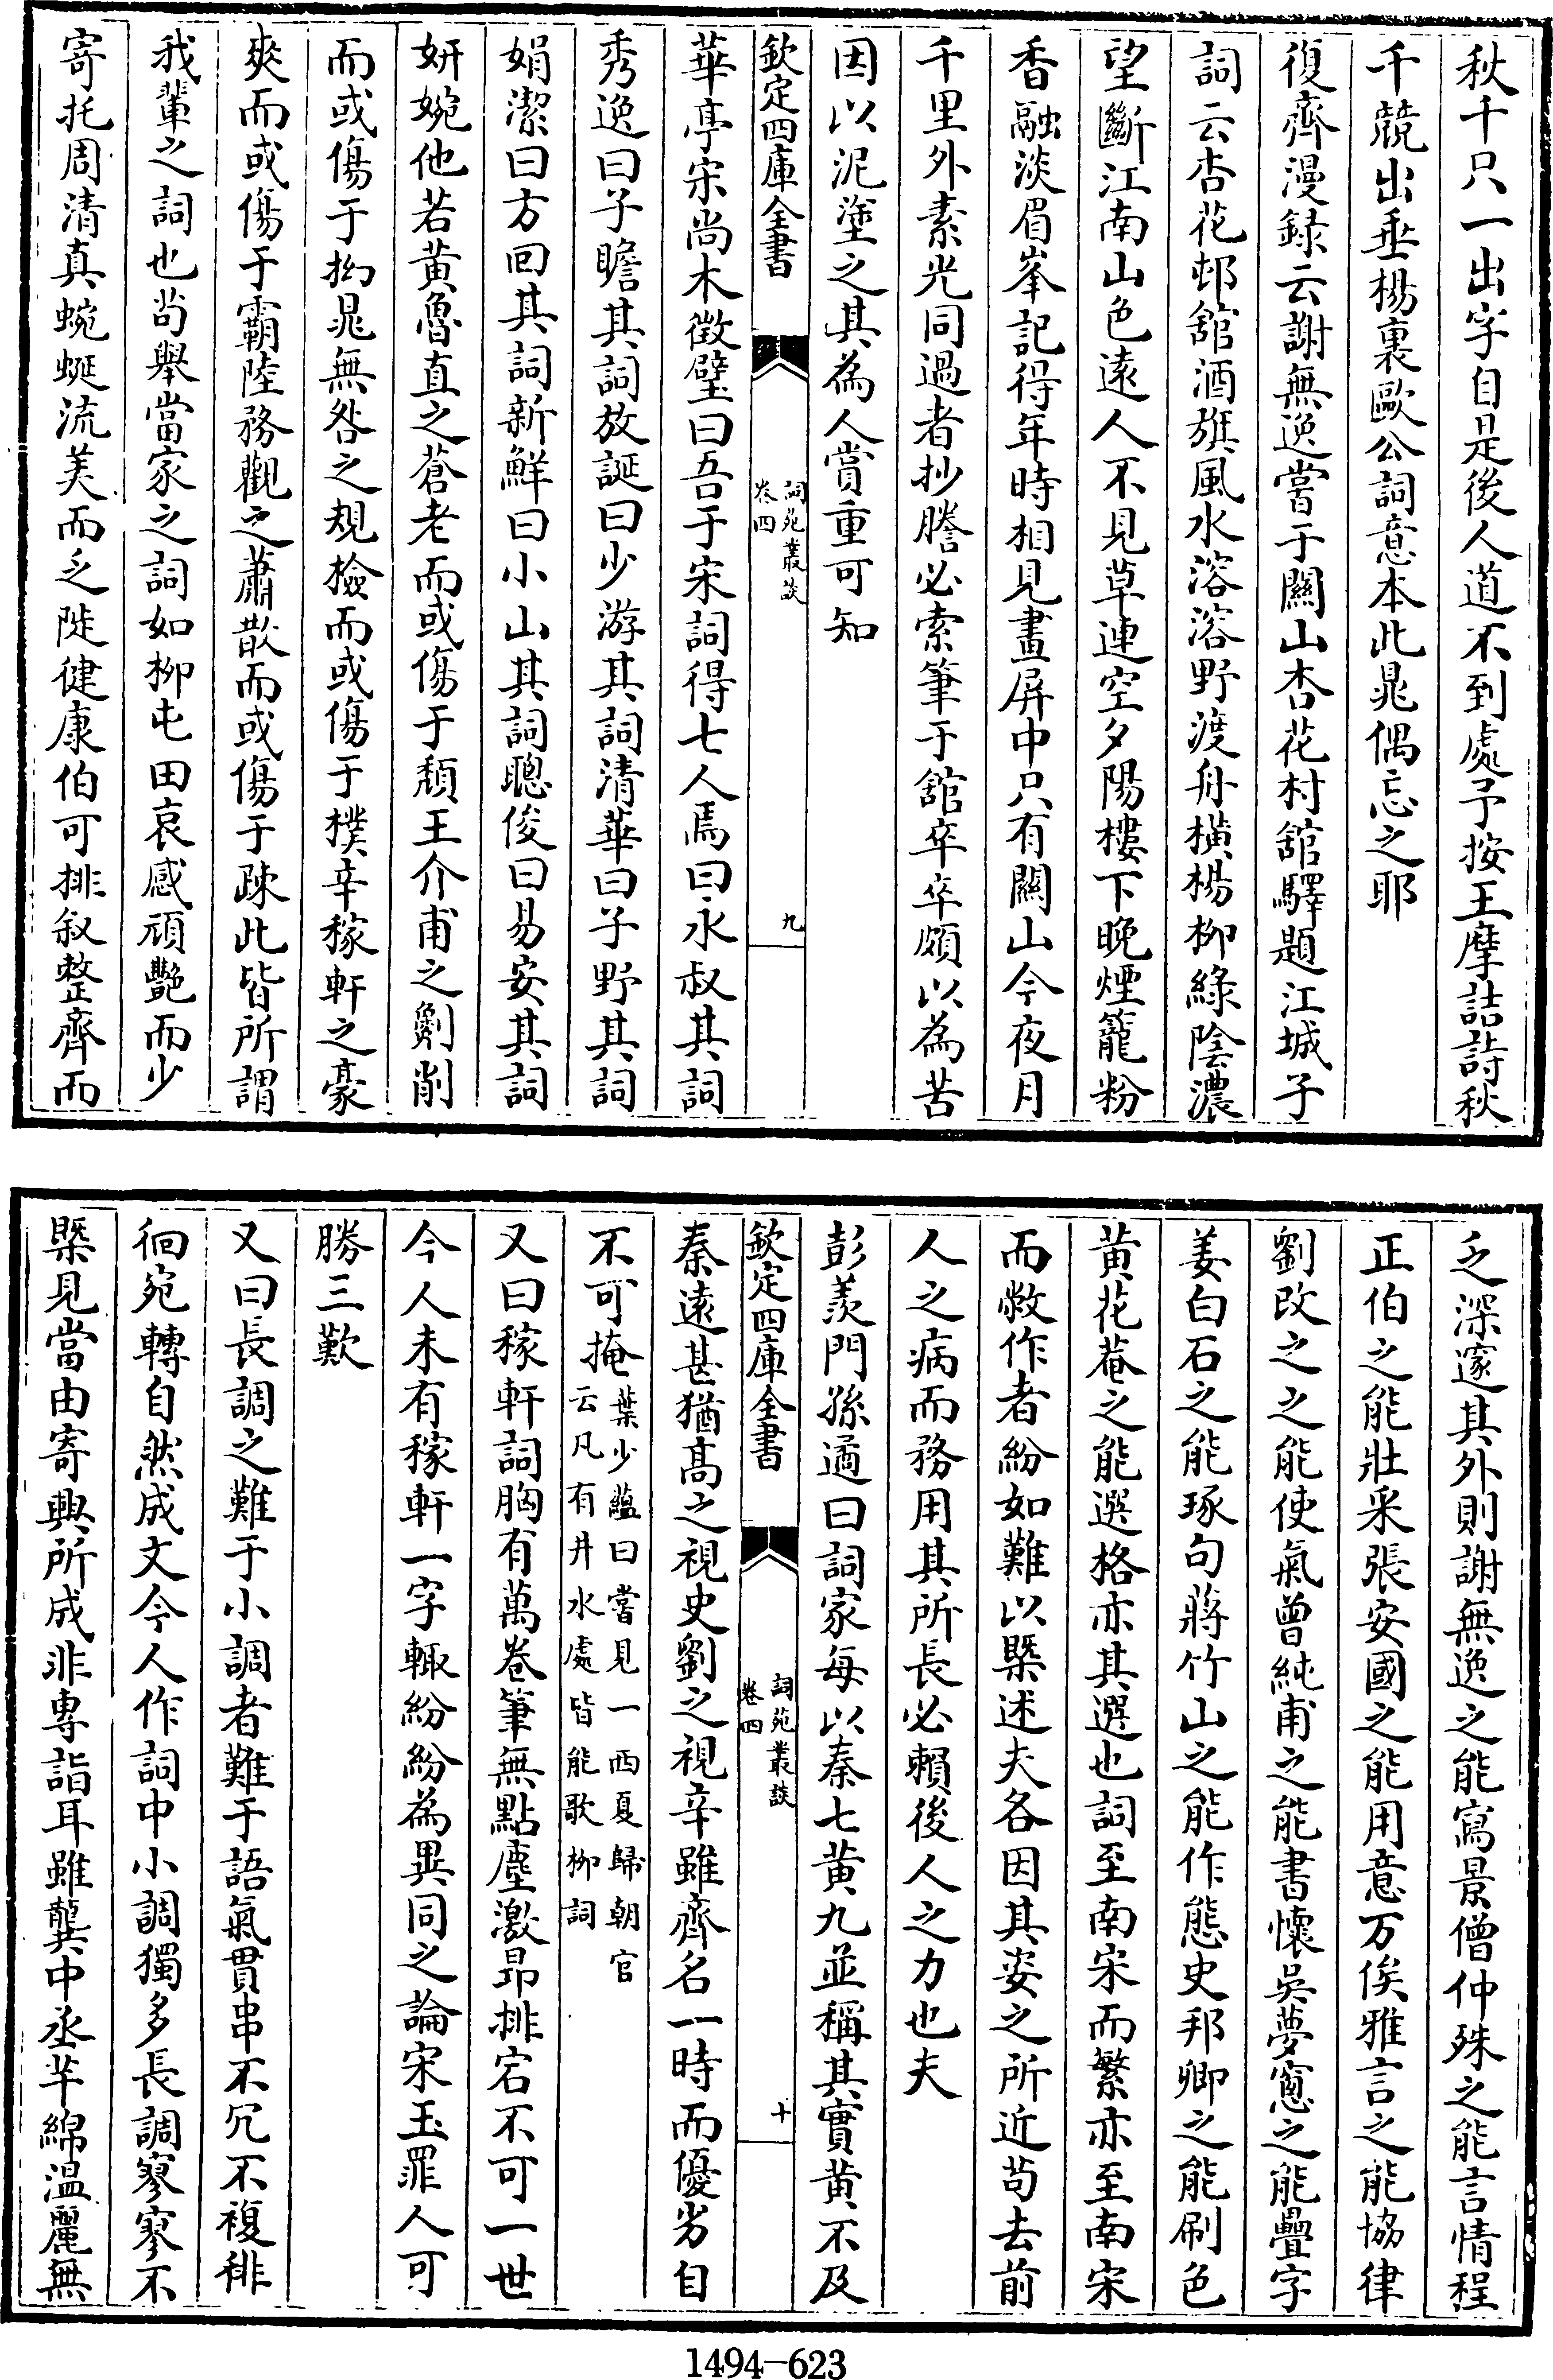 秋千只一出字自是後人道不到處予按王摩詰詩秋
千競出垂楊裏歐公詞意本此晁偶忘之耶
復齊漫録云謝無逸嘗于關山杏花村舘驛題江城子
詞云杏花邨舘酒旗風水溶溶野渡舟横楊柳緑陰濃
望斷江南山色遠人不見草連空夕陽樓下晚煙籠粉
香融淡眉峯記得年時相見畫屏中只有關山今夜月
千里外素光同過者抄謄必索筆于舘卒卒頗以為苦
因以泥塗之其為人賞重可知
欽定四庫全書
詞苑叢談
卷四
九
華亭宋尚木徵璧曰吾于宋詞得七人焉曰永叔其詞
秀逸曰子瞻其詞放誕曰少游其詞清華曰子野其詞
娟潔曰方回其詞新鮮曰小山其詞聰俊曰易安其詞
妍婉他若黄魯直之蒼老而或傷于頽王介甫之劖削
而或傷于拗晁無咎之規檢而或傷于樸辛稼軒之豪
爽而或傷于霸陸務觀之蕭散而或傷于疎此皆所謂
我輩之詞也苟舉當家之詞如柳屯田哀感頑艷而少
寄托周清真蜿蜒流美而乏陡健康伯可排叙整齊而
乏深邃其外則謝無逸之能寫景僧仲殊之能言情程
正伯之能壯采張安國之能用意万俟雅言之能協律
劉改之之能使氣曾純甫之能書懷吳夢窻之能疊字
姜白石之能琢句蔣竹山之能作態史邦卿之能刷色
黄花菴之能選格亦其選也詞至南宋而繁亦至南宋
而敝作者紛如難以槩述夫各因其姿之所近苟去前
人之病而務用其所長必賴後人之力也夫
彭羡門孫遹曰詞家每以秦七黄九並稱其實黄不及
欽定四庫全書
詞苑叢談
卷四
十
秦遠甚猶髙之視史劉之視辛雖齊名一時而優劣自
不可掩葉少藴曰嘗見一西夏歸朝官
云凡有井水處皆能歌柳詞
又曰稼軒詞胸有萬卷筆無點塵激昂排宕不可一世
今人未有稼軒一字輙紛紛為異同之論宋玉罪人可
勝三歎
又曰長調之難于小調者難于語氣貫串不冗不複徘
徊宛轉自然成文今人作詞中小調獨多長調寥寥不
槩見當由寄興所成非專詣耳雖龔中丞芊綿温麗無
1494—623